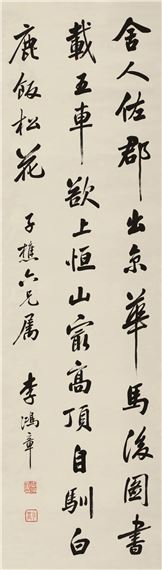 舍人佐郡出京華馬後圖書
載五車欲上恒山最高頂自馴白
鹿飯松花
子樵六兄屬
李鴻章